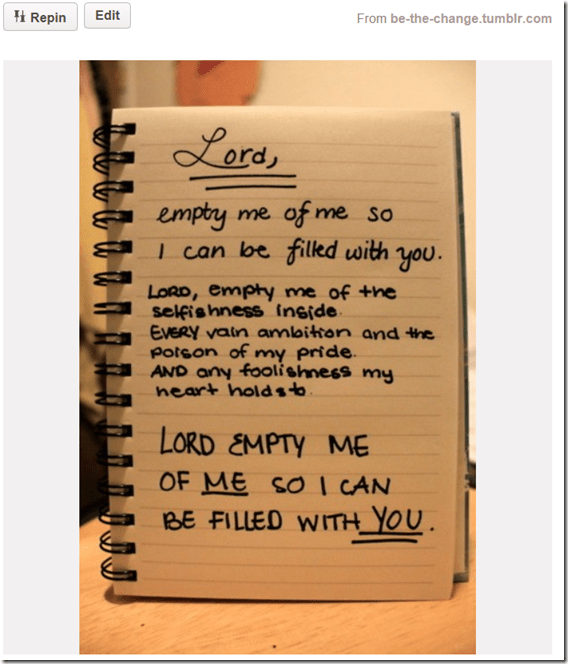 Repin
Edit
From be-the-change.tumblr.com
Lord,
empty me of me so
I can be filled with you.
LORD, empty me of the
selfishness inside.
EVERY vain ambition and the
poison of my pride.
AND any foolishness my
heart holds to.
LORD EMPTY ME
OF ME SO I CAN
BE FILLED WITH YOU.